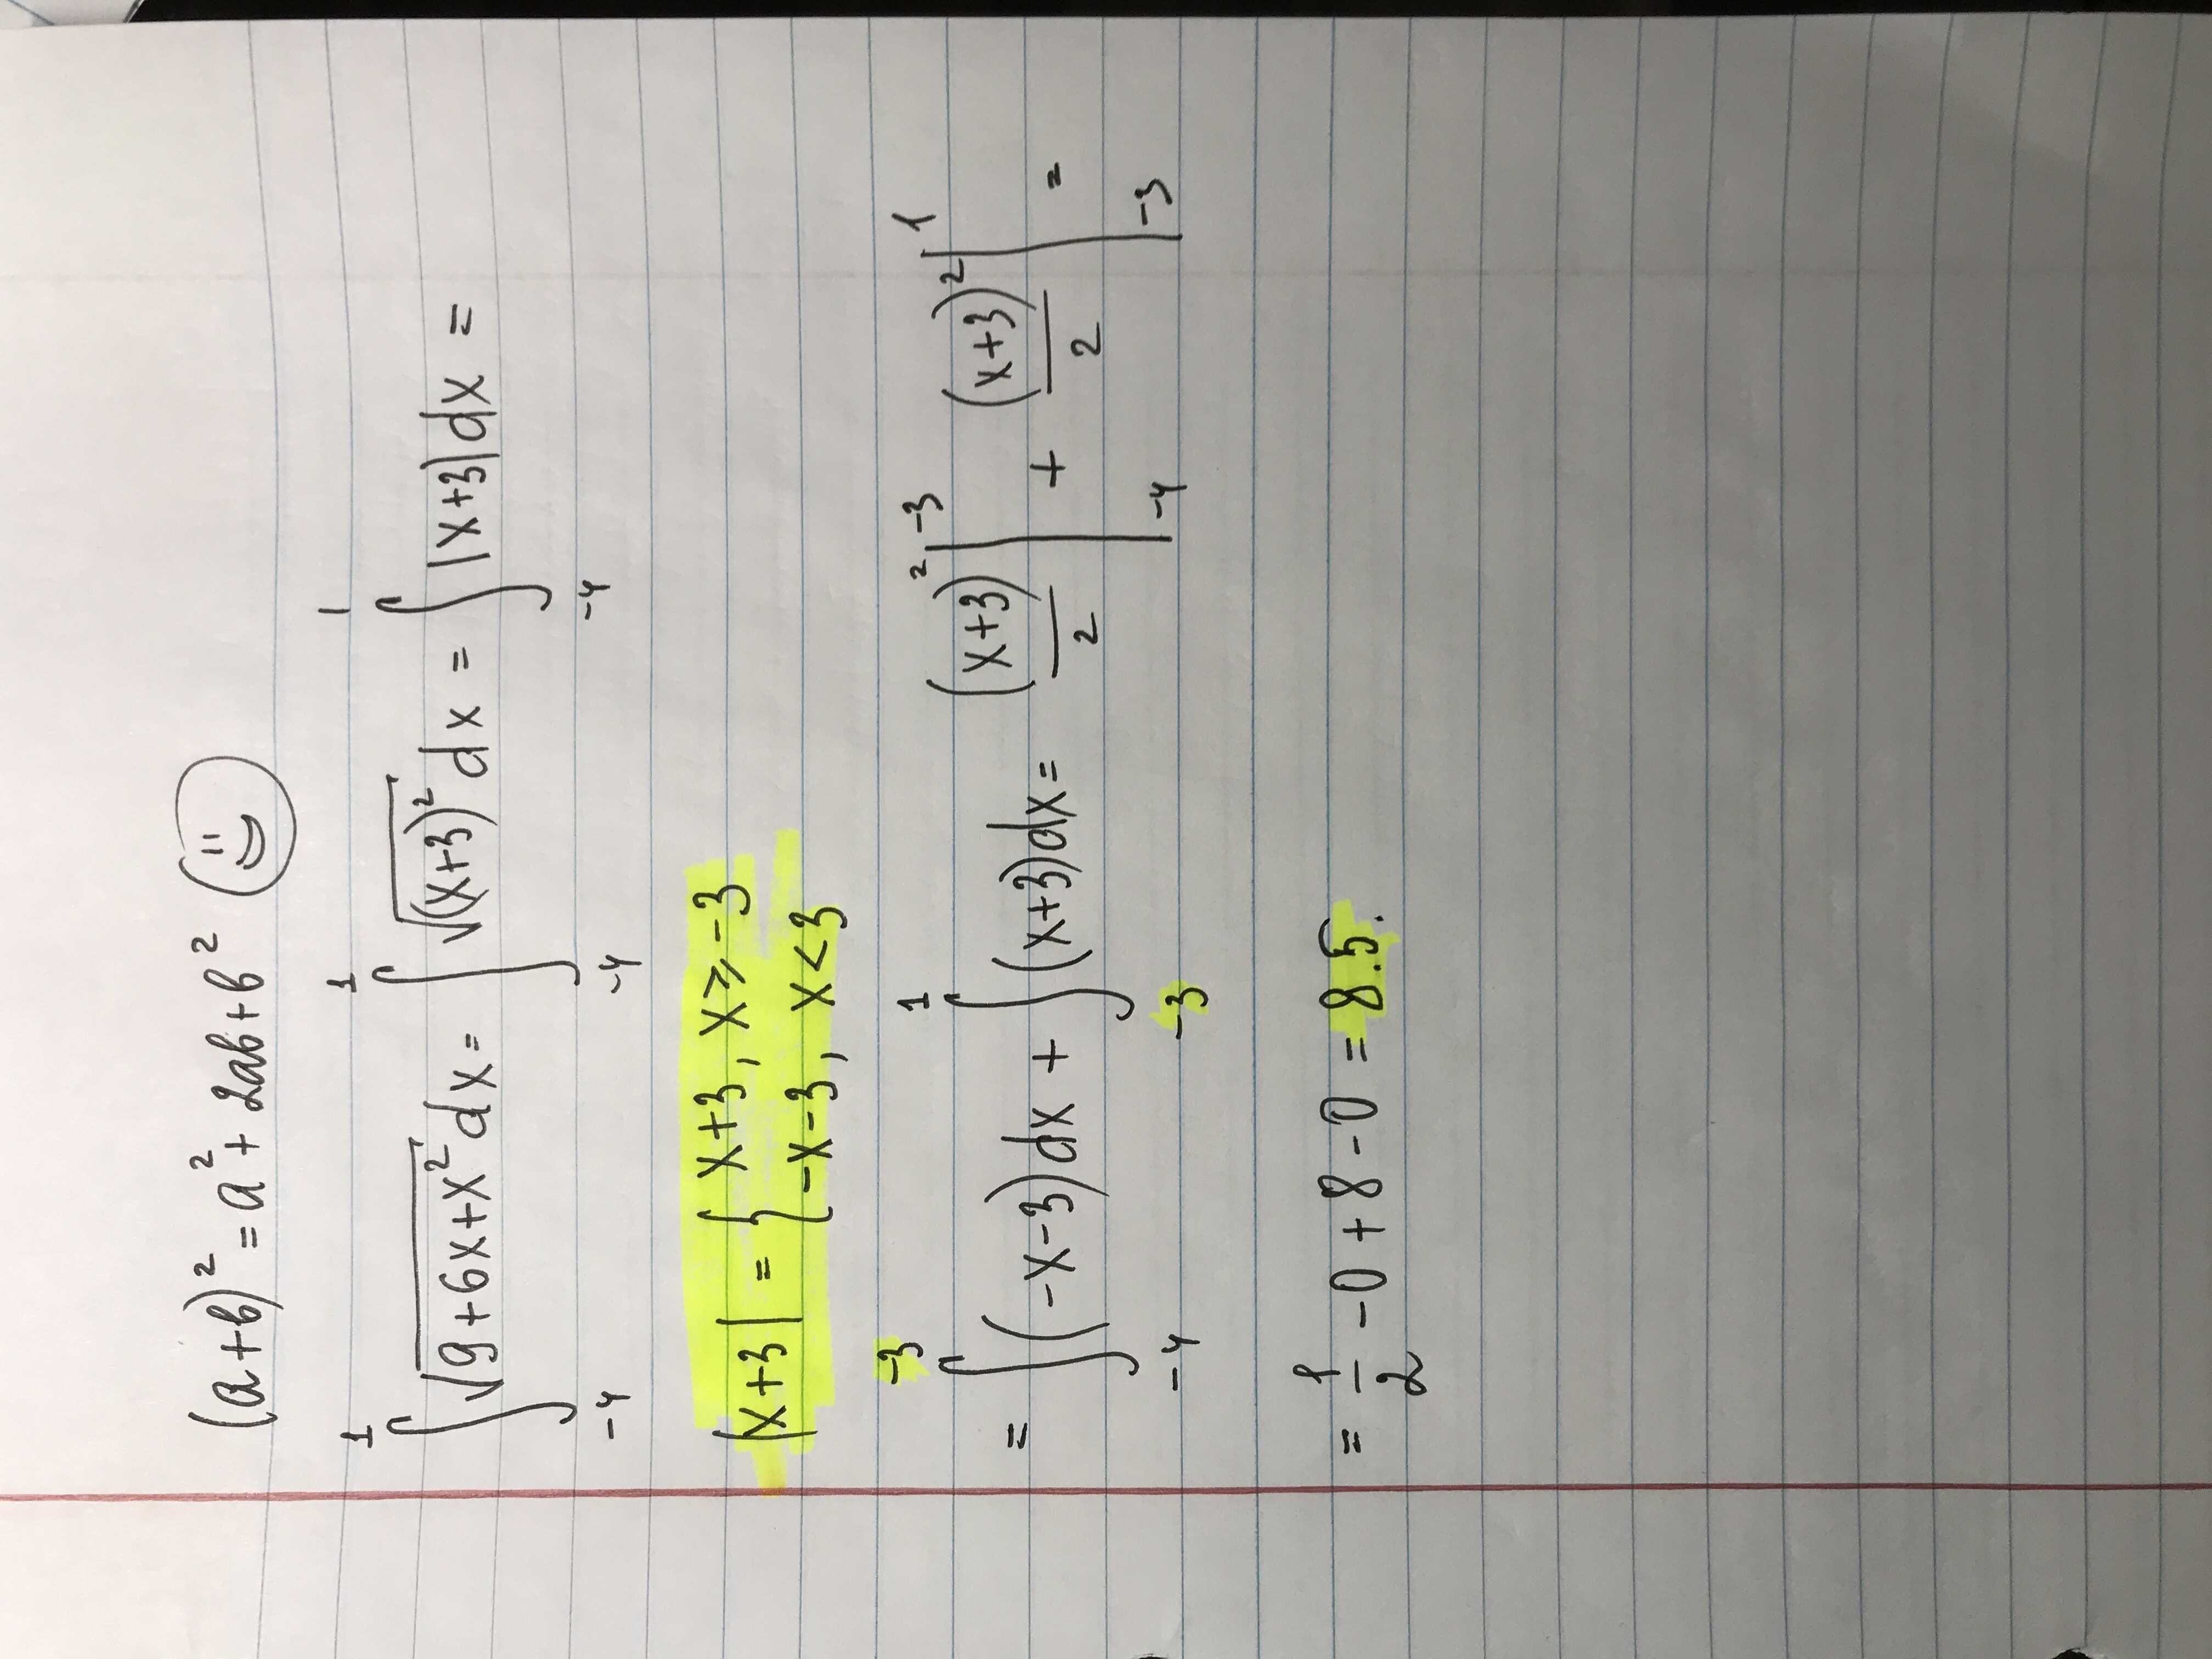 (a+b)² = a² + 2ab + b²
∫₋₄¹ √(9+6x+x²) dx = ∫₋₄¹ √((x+3)²) dx = ∫₋₄¹ |x+3| dx =
|x+3| = { x+3, x ≥ -3
-x-3, x < 3
= ∫₋₄⁻³ (-x-3)dx + ∫₋₃¹ (x+3)dx = (x+3)²/2 |₋₄⁻³ + (x+3)²/2 |₋₃¹ =
= 1/2 - 0 + 8 - 0 = 8.5.